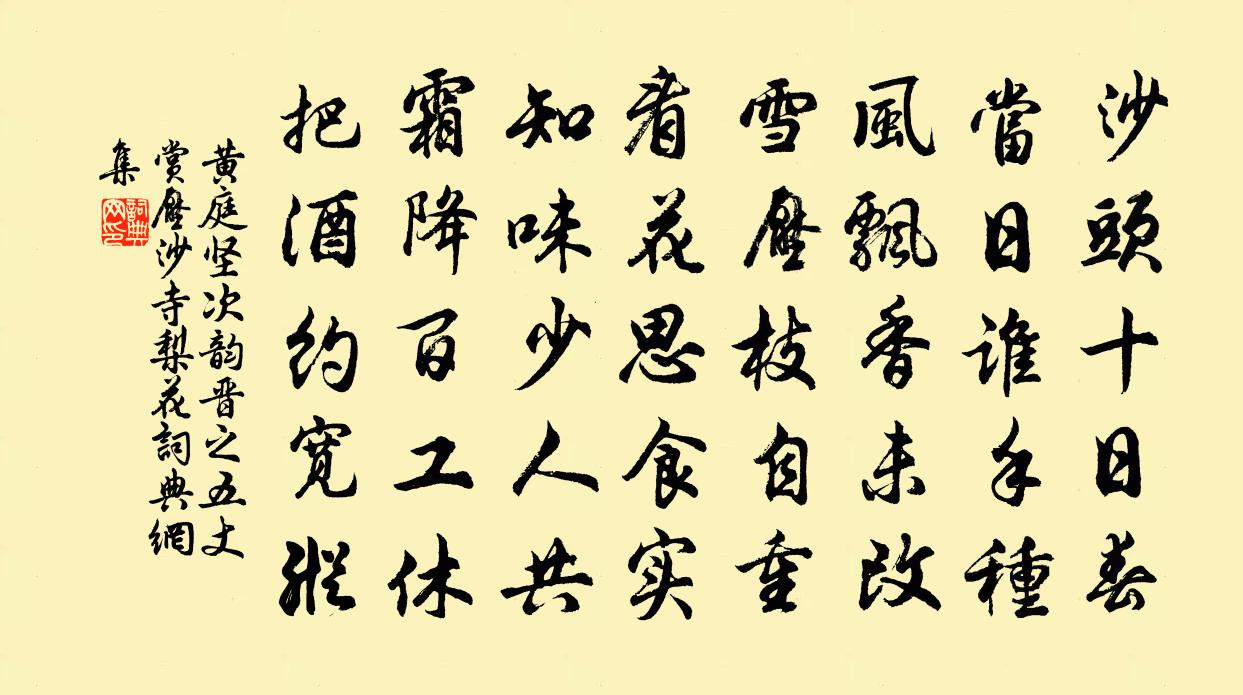 沙頭十日春
當日誰手種
風飄香未改
雪壓枝自重
看花思食实
知味少人共
霜降百工休
把酒約宽縱
黄庭坚次韵晋之五丈
赏壓沙寺梨花詞典網
集
詞典网印